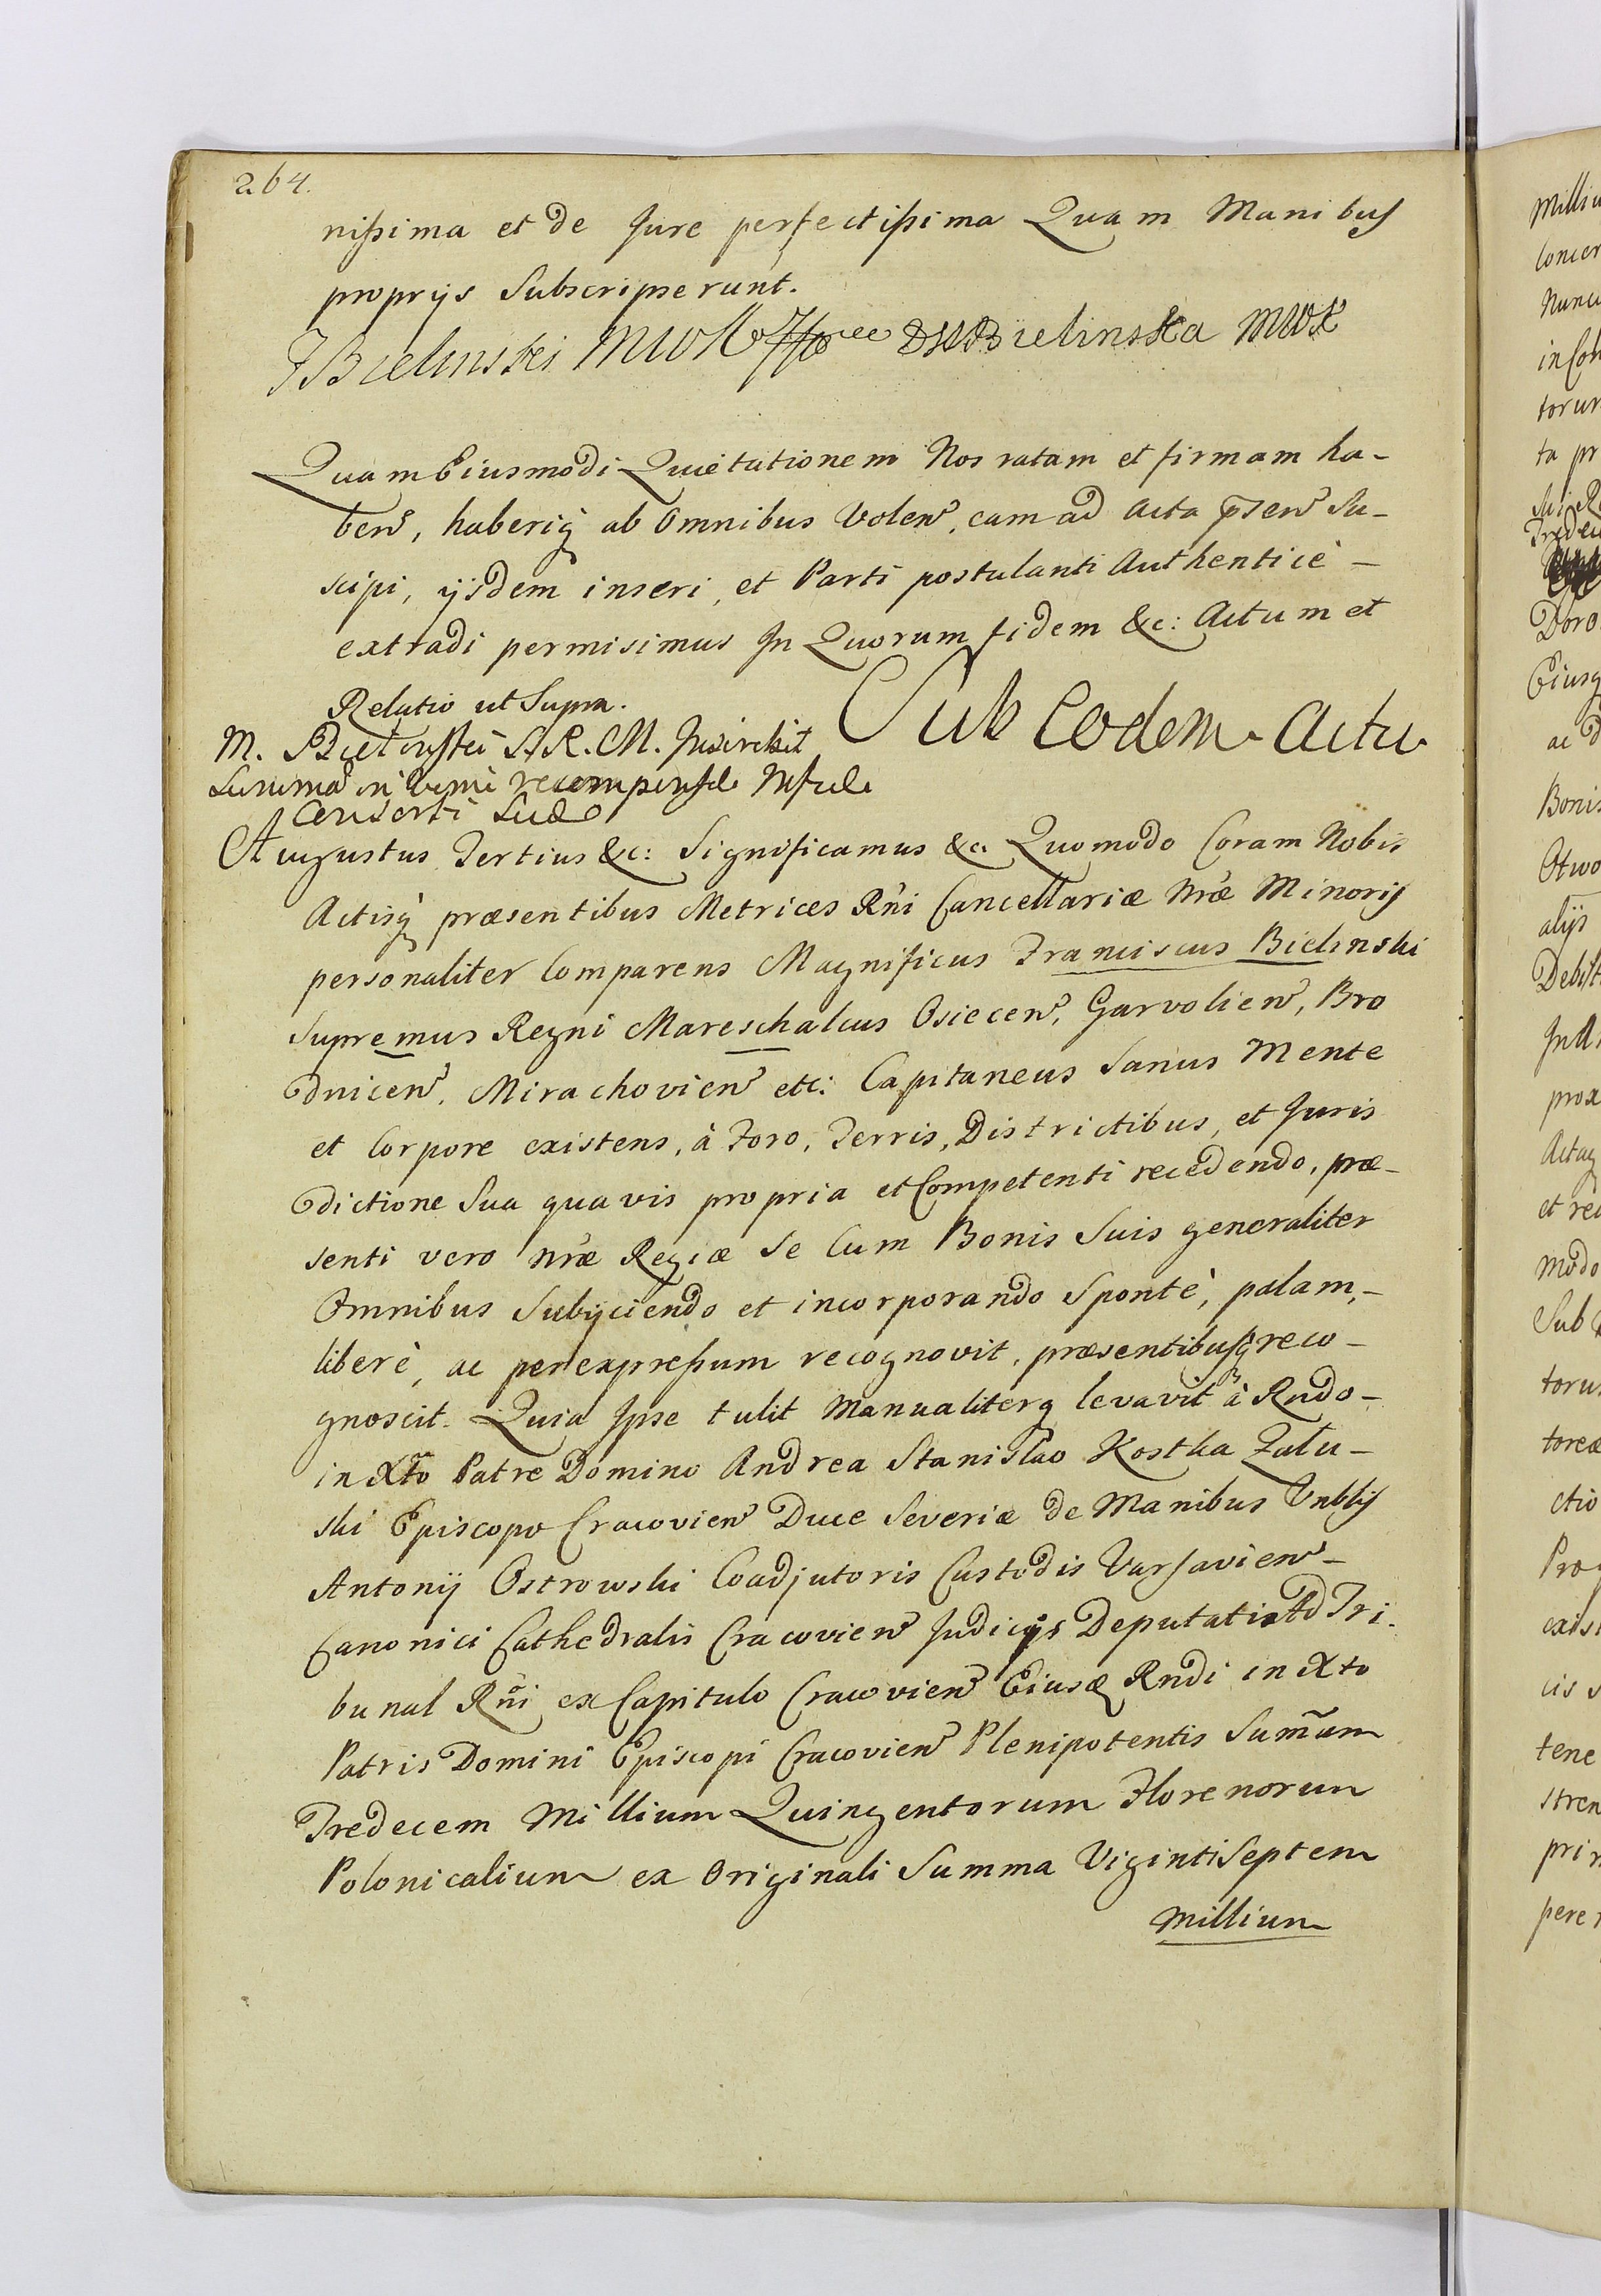 264.
nissima et de Jure perfectissima Quam Manibus
proprijs Subscripserunt.
FBielinski MWK DHBielinska MWK
Quam Eiusmodi Quietationem Nos ratam et firmam ha-
ben͂, haberiq̃ ab Omnibus Volen͂, eam ad Acta p̃sen͂ Su-
scipi, ijsdem inseri, et Parti postulanti Authenticè -
extradi permisimus In Quorum fidem &c: Actum et
Relatio ut Supra.
Sub Eodem Actu
M. Bielinski S. R. M.
Summa
Augustus Tertius &c: Significamus &c. Quomodo Coram Nobis
Actisq̃ præsentibus Metrices Rñi Cancellariæ Nræ Minoris
personaliter Comparens Magnificus Franciscus Bielinski
Supremus Regni Mareschalcus Osiecen͂, Garvolien͂, Bro
dnicen͂, Mirachovien͂ etc: Capitaneus Sanus Mente
et Corpore existens, à Foro, Terris, Districtibus, et Juris
dictione Sua quavis propria et Competenti recedendo, præ-
senti vero Nræ Regiæ Se Cum Bonis Suis generaliter
Omnibus Subijciendo et incorporando Spontè, palam, -
liberè, ac per expressum recognovit, præsentibusq̃ reco-
gnoscit. Quia Ipse tulit Manualiterq̃ levavit à Rndo -
in Xto Patre Domino Andrea Stanislao Kostka Zału-
ski Episcopo Cracovien͂ Duce Severiæ de Manibus Vnblis
Antonij Ostrowski Coadjutoris Custodis Varsavien͂ -
Canonici Cathedralis Cracovien͂ Judicijs Deputati Ad Tri-
bunal Rñi ex Capitulo Cracovien͂ Eiusq̃ Rndi in Xto
Patris Domini Episcopi Cracovien͂ Plenipotentis Sum̃am
Tredecem Millium Quingentorum Florenorum
Polonicalium ex Originali Summa Viginti Septem
Millium